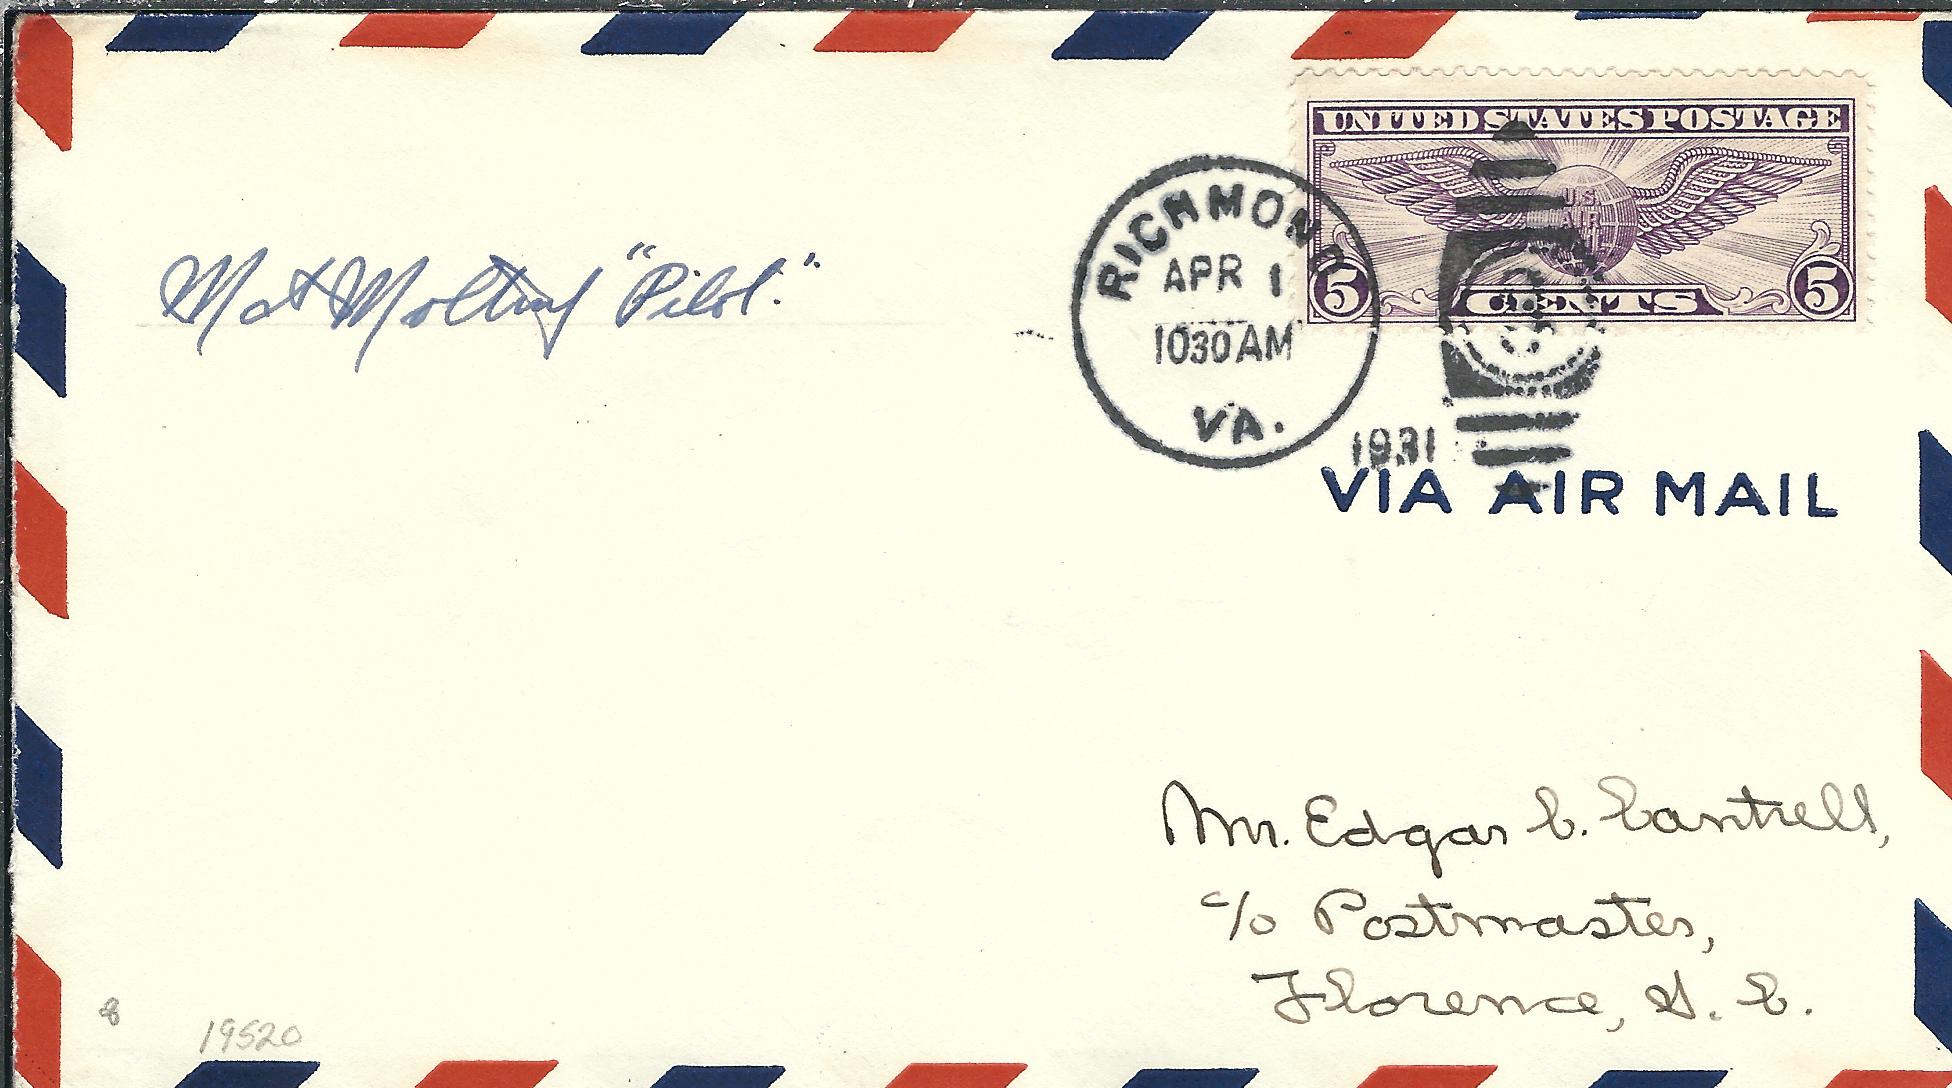 UNITED STATES POSTAGE
U.S.
AIR
5 CENTS 5
RICHMOND
APR 1
1030 AM
VA.
1931
VIA AIR MAIL
"Pilot."
Mr. Edgar C. Cantrell,
c/o Postmaster,
Florence, S. C.
8
19520